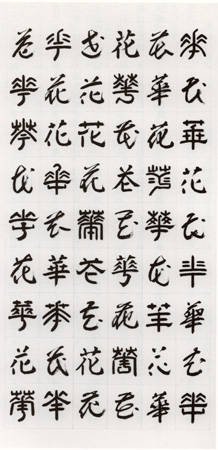 華花華花花華華花華
花華花華花華花華
花花花花華花花
花花花花華花花花花
華花花華花華華花華
花華華花華花華花華